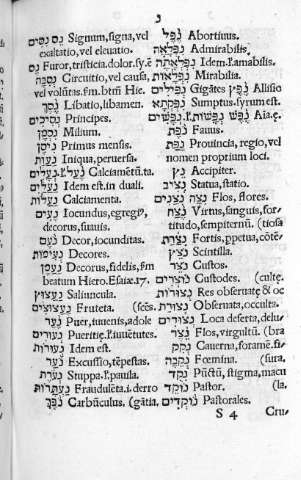 נ
נס נסים Signum, signa, vel
exaltatio, vel eleuatio.
נס Furor, tristicia. dolor. sy. é
נסבה Circuitio, vel causa,
vel volũtas. ſm. btm̃ Hie.
נסך Libatio, libamen.
נסיכים Principes.
Milium.
ניסן Primus mensis.
Iniqua, peruersa.
נעל Calciamẽtũ.
Idem est. in duali.
נעלות Calciamenta.
נעים Iocundus, egregi⁹,
decorus, suauis.
נעם Decor, iocunditas.
נעימות Decores.
נעמן Decorus, fidelis, ſm̃
beatum Hiero. Esaiæ. 17.
נעצוץ Saliuncula.
נעצוצים Fruteta.
נער Puer, iuuenis, adole
נעורים Pueritię. ſ. iuuẽtutes.
נעורות Idem est.
נער Excussio, tẽpestas.
נערת Stuppa. ſ. paula.
Fraudulẽta. i. derro
נפך Carbũculus. (gãtia.
נפל Abortiuus.
נפלאה Admirabilis.
Idem. ſ. amabilis.
נפלאות Mirabilia.
נפילים Gigãtes Allisio
Sumptus. syrum est.
נפש נפשים Aĩa. ę.
נפת Fauus.
נפת Prouincia, regio, vel
nomen proprium loci.
נץ Accipiter.
נציב Statua, statio.
נצה נצים Flos, flores.
נצח Virtus, sanguis, for-
titudo, sempiternũ. (tiosa
נצחת Fortis, ppetua, cõtẽ-
ניצוץ Scintilla.
נצר Custos.
נוצרים Custodes. (cultę.
נצורות Res obseruatę & oc
נצורת Obseruata, occulta.
נצורים Loca deserta, delu
נצר Flos, virgultũ. (bra
נקיק Cauerna, foramẽ. ſi-
נקבה Fœmina. (sura,
נקד Pũctũ, stigma, macu
נוקד Pastor. (la.
נוקדים Pastorales.
S 4 Cru-